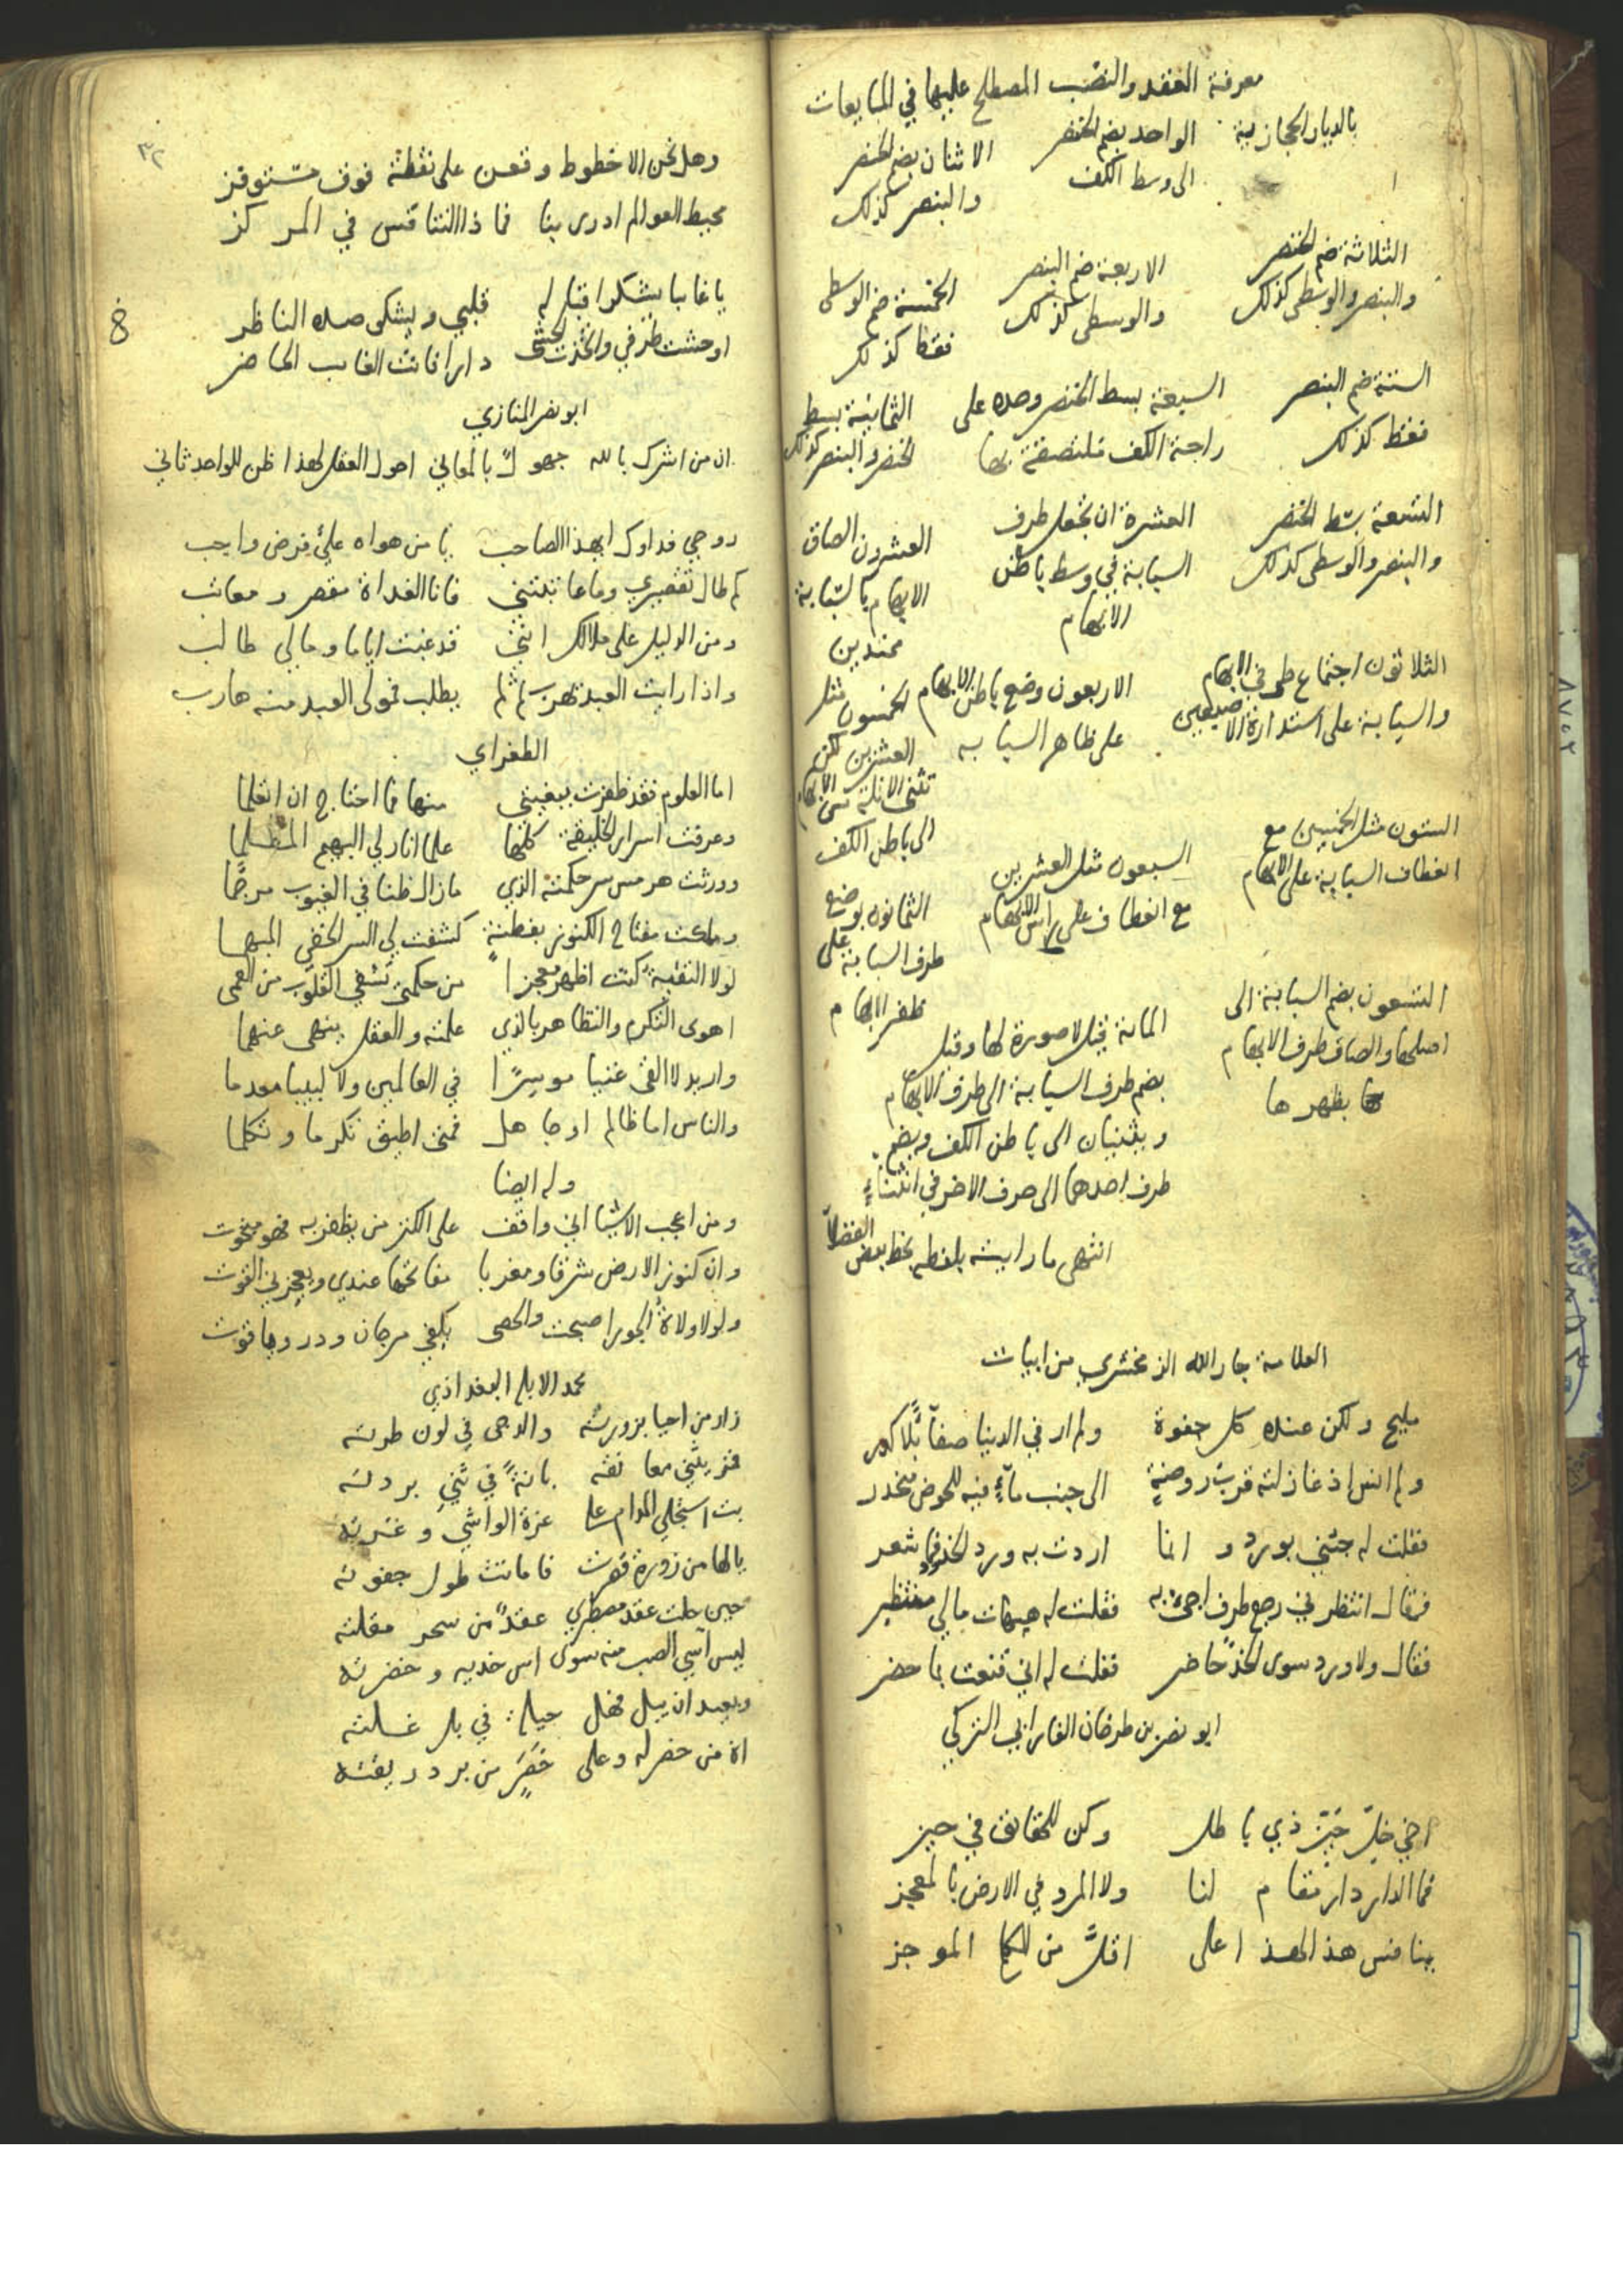 معرفة العقد والنصب المصطلح عليها في المبايعات
بالديار الحجازية الواحد بضم الخنصر الاثنان بضم الخنصر
الى وسط الكف والبنصر كذلك
الثلاثة ضم الخنصر الاربعة ضم البنصر الخمسة ضم الوسطى
والبنصر والوسطى كذلك والوسطى كذلك فقط كذلك
الستة ضم البنصر السبعة بسط الخنصر وحده على الثمانية بسط
فقط كذلك راحة الكف ملتصقة بها الخنصر والبنصر كذلك
التسعة بسط الخنصر العشرة ان تجعل طرف العشرون الصاق
والبنصر والوسطى كذلك السبابة في وسط باطن الابهام بالسبابة
الابهام ممتدين
الثلاثون اجتماع طرفي الابهام الاربعون وضع باطن الابهام الخمسون مثل
والسبابة على استدارة الاصبعين على ظاهر السبابه العشرين لكن
تثنى الانملة من الابهام
الى باطن الكف
الستون مثل الخمسين مع السبعون مثل العشرين الثمانون بوضع
انعطاف السبابة على الابهام مع انعطاف على راس الابهام طرف السبابة على
ظفر الابهام
التسعون بضم السبابة الى الماية قيل لا صورة لها وقيل
اصلها والصاق طرف الابهام بضم طرف السبابة الى طرف الابهام
بظهرها ويثنيان الى باطن الكف وبضم
طرف احدهما الى طرف الاخر في انثناء
انتهى ما رايته بلفظه بخط بعض الفضلا
العلامة جار الله الزمخشري من ابيات
مليح ولكن عنده كل جفوة ولم ار في الدنيا صفاً بلا كدر
ولم انس اذ غازلته قرب روضة الى جنب ماء فيه للحوض منحدر
فقلت له جئني بورد وانما اردت به ورد الخدود فما شعر
فقال انتظرني رجع طرف اجئ به فقلت له هيهات مالي منتظر
فقال ولا ورد سوى الخد حاضر فقلت له اني قنعت بما حضر
ابو نصر بن طرخان الفارابي التركي
اخي خل حيز ذي باطل وكن للحقائق في حيز
فما الدار دار مقام لنا ولا المرء في الارض بالمعجز
ينافس هذا لهذا على اقل من الكلم الموجز
٣٢
وهل نحن الا خطوط وقعن على نقطة فوق مستوفز
محيط العوالم ادرى بنا فما ذا التنافس في المركز
يا غايبا يشكوا قبله قلبي ويشكى صده الناظر
اوحشت طرفي واتخذت الحشى دارا فانت الغايب الحاضر
ابو نصر المنازي
ان من اشرك بالله جهول بالمعاني احول العقل لهذا ظن للواحد ثاني
روحي فداوك ايهذا الصاحب يا من هواه علي فرض واجب
كم طال تقصيري وما عاتبتني فانا الغداة مقصر ومعاتب
ومن الدليل على ملالك انني قد غبت اياما ومالي طالب
واذا رايت العبد يهرب ثم لم يطلب فمولى العبد منه هارب
الطغراي
اما العلوم فقد ظفرت ببغيتي منها فما احتاج ان اتعلما
وعرفت اسرار الخليقة كلها علما انار لي البهيم المظلما
وورثت هرمس سر حكمته الذي ما زال ظنا في الغيوب مرجما
وملكت مفتاح الكنوز بفطنة كشفت لي السر الخفي المبهما
لولا التقية كنت اظهر معجزا من حكمتي تشفي القلوب من العمى
اهوى التكرم والتظاهر بالذي علمته والعقل ينهى عنهما
واريد لا القى غنيا موسرا في العالمين ولا لبيبا معدما
والناس اما ظالم او جاهل فمتى اطيق تكرما وتكلما
وله ايضا
ومن اعجب الاشيا اني واقف على الكنز من يظفر به فهو مبخوت
وان كنوز الارض شرقا ومغربا مفاتحها عندي ويعجزني القوت
ولولا ولاة الجور اصبحت والحصى بكفي مرجان ودر وياقوت
محمد الابله البغداذي
زار من احيا بزورته والدجى في لون طرته
قمر يثني معانقه بانة في ثني بردته
بت استجلي المدام على غرة الواشي وغرته
يالها من زورة قصرت فاماتت طول جفوته
حين حلت عقد مصطبري عقد من سحر مقلته
ليس اسي الصب منه سوى اس خديه وخضرته
وبعيد ان يبل فهل حيلة في بل غلته
اه من خصر له وعلى خصر من برد ريقته